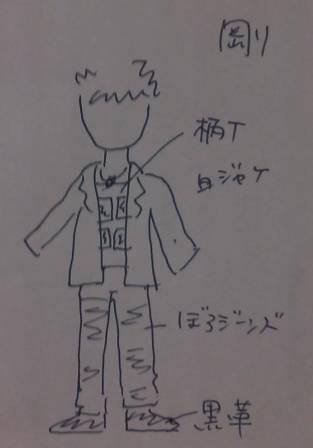 剛)
柄T
白ジャケ
ぼろジーンズ
黒革